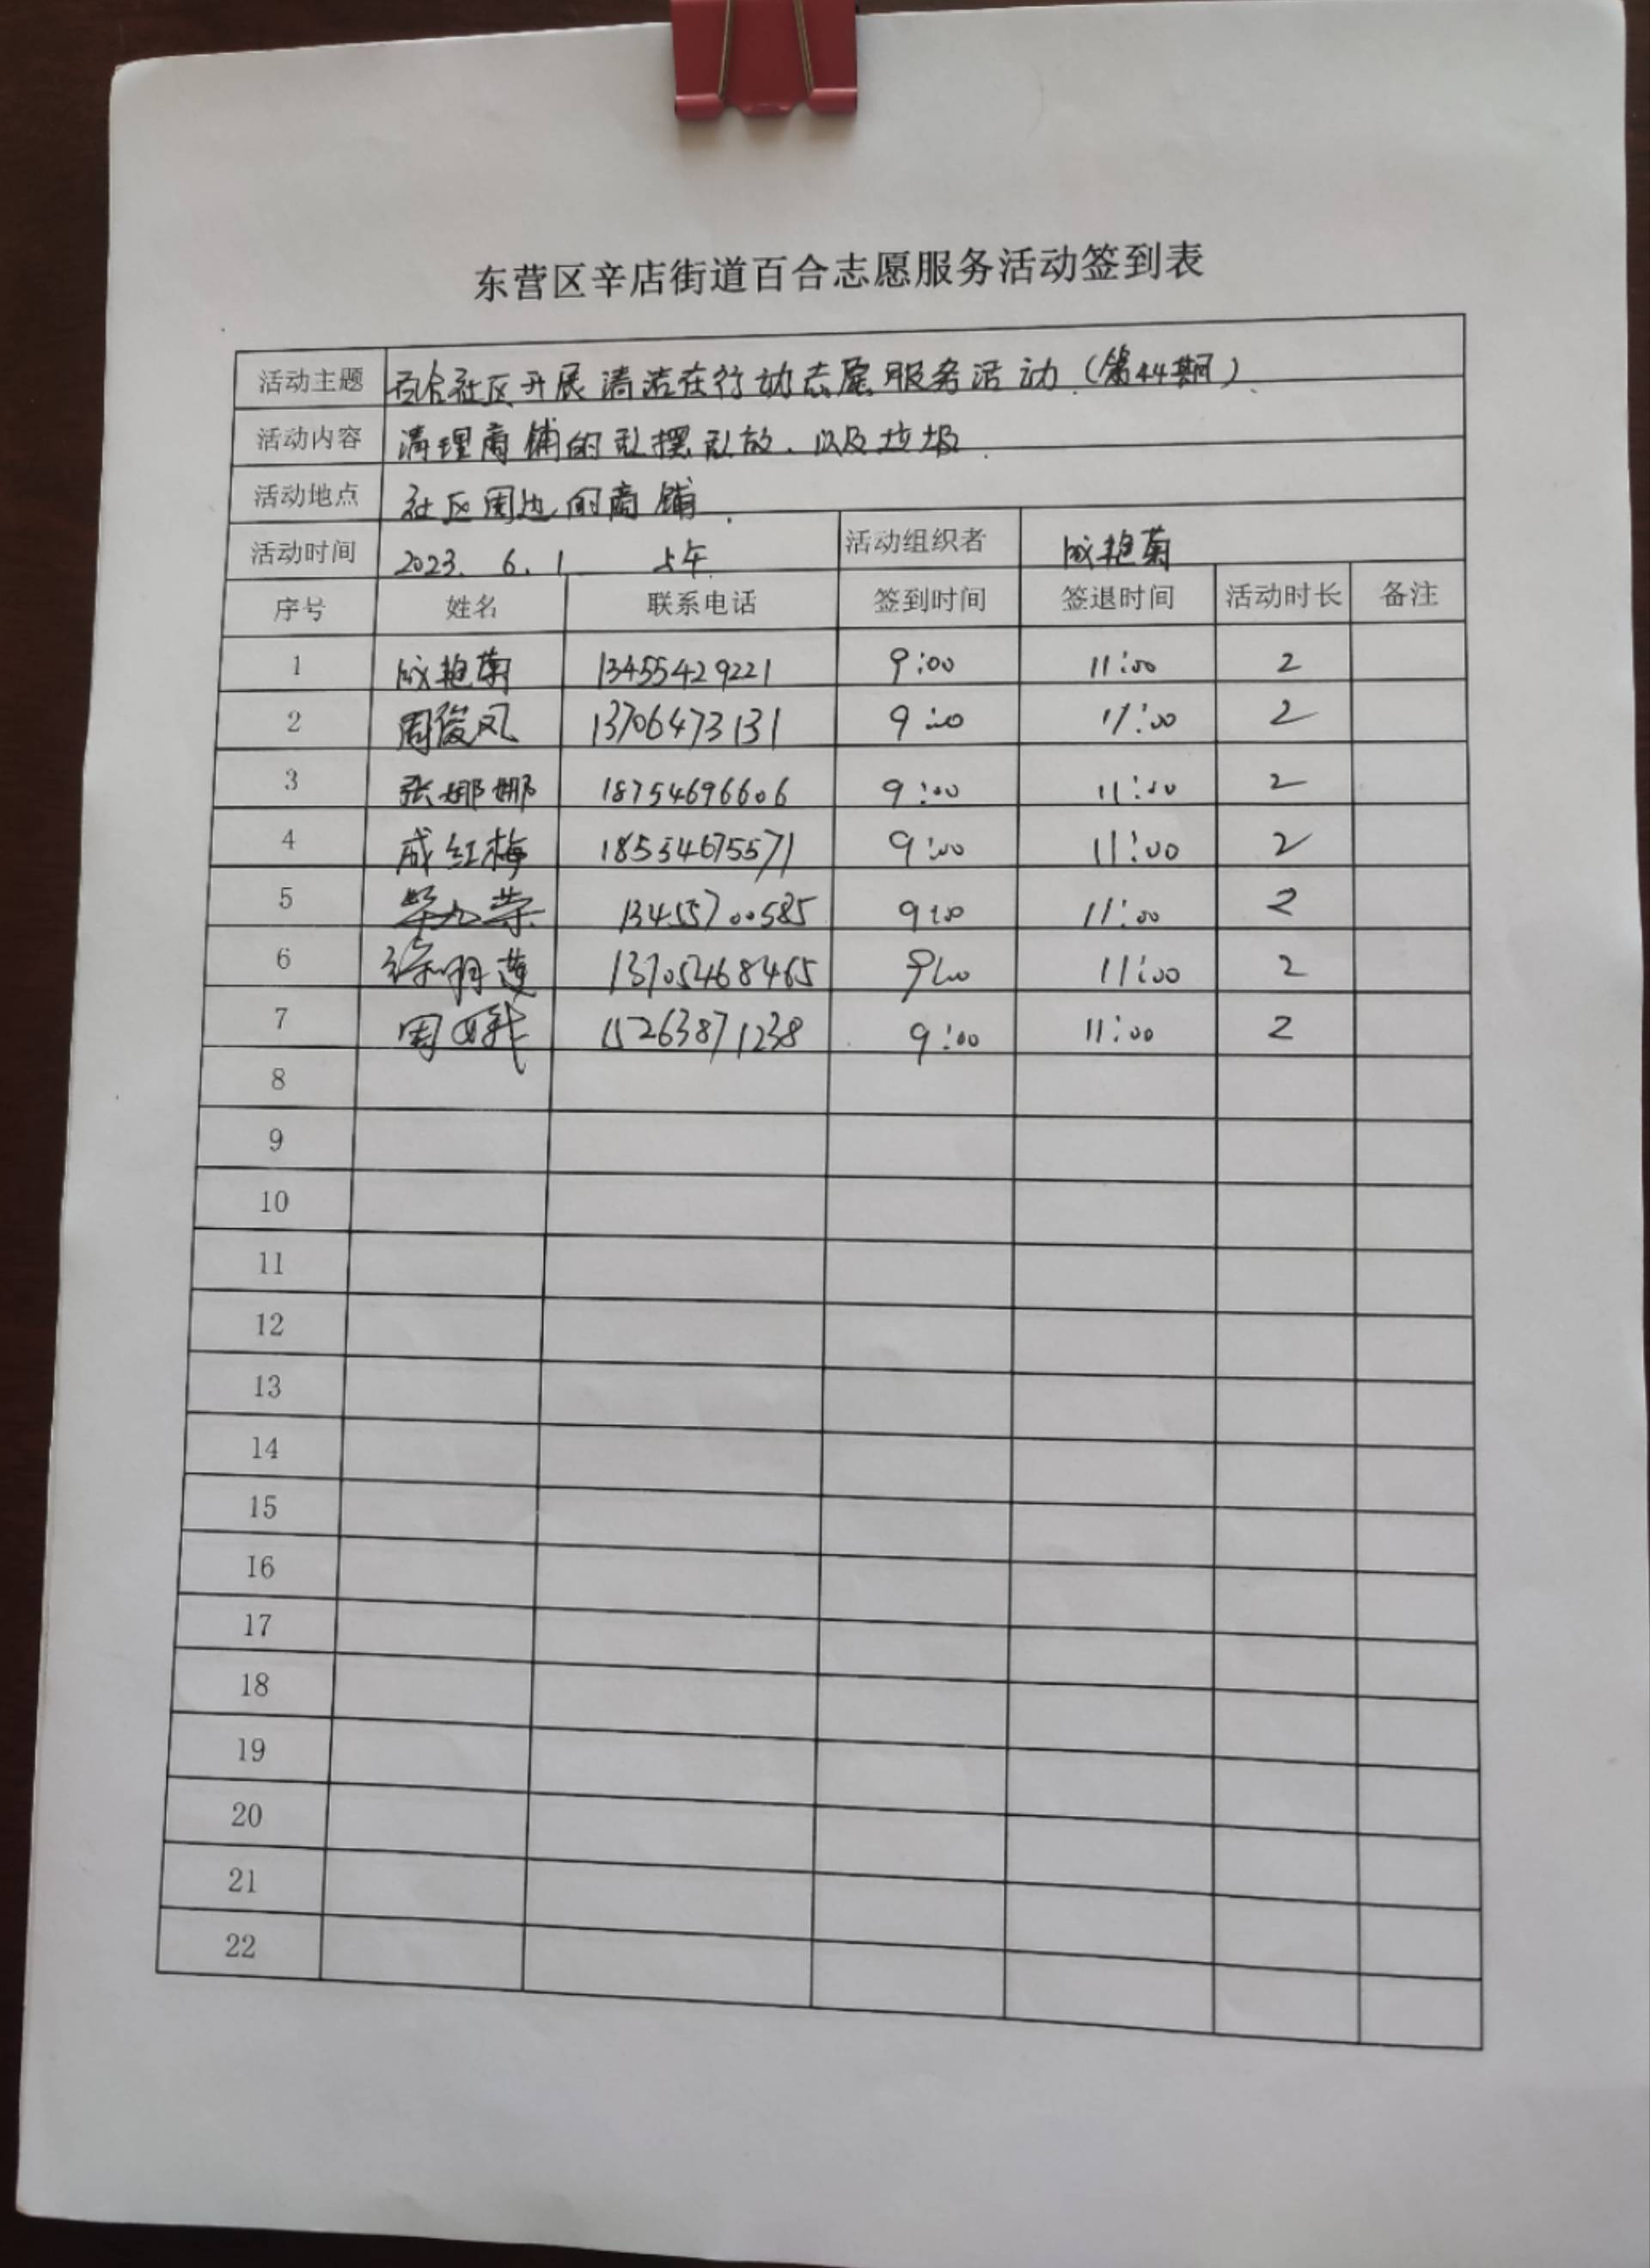 东营区辛店街道百合志愿服务活动签到表
活动主题 百合社区开展清洁在行动志愿服务活动(第44期).
活动内容 清理商铺的乱摆乱放.以及垃圾.
活动地点 社区周边的商铺.
活动时间 2023. 6. 1 上午 活动组织者 成艳菊
序号 姓名 联系电话 签到时间 签退时间 活动时长 备注
1 成艳菊 13455429221 9:00 11:00 2
2 周俊凤 13706473131 9:00 11:00 2
3 张娜娜 18754696606 9:00 11:00 2
4 成红梅 18554675571 9:00 11:00 2
5 13455700585 9:00 11:00 2
6 徐明莲 13705468465 9:00 11:00 2
7 周 15263871238 9:00 11:00 2
8
9
10
11
12
13
14
15
16
17
18
19
20
21
22